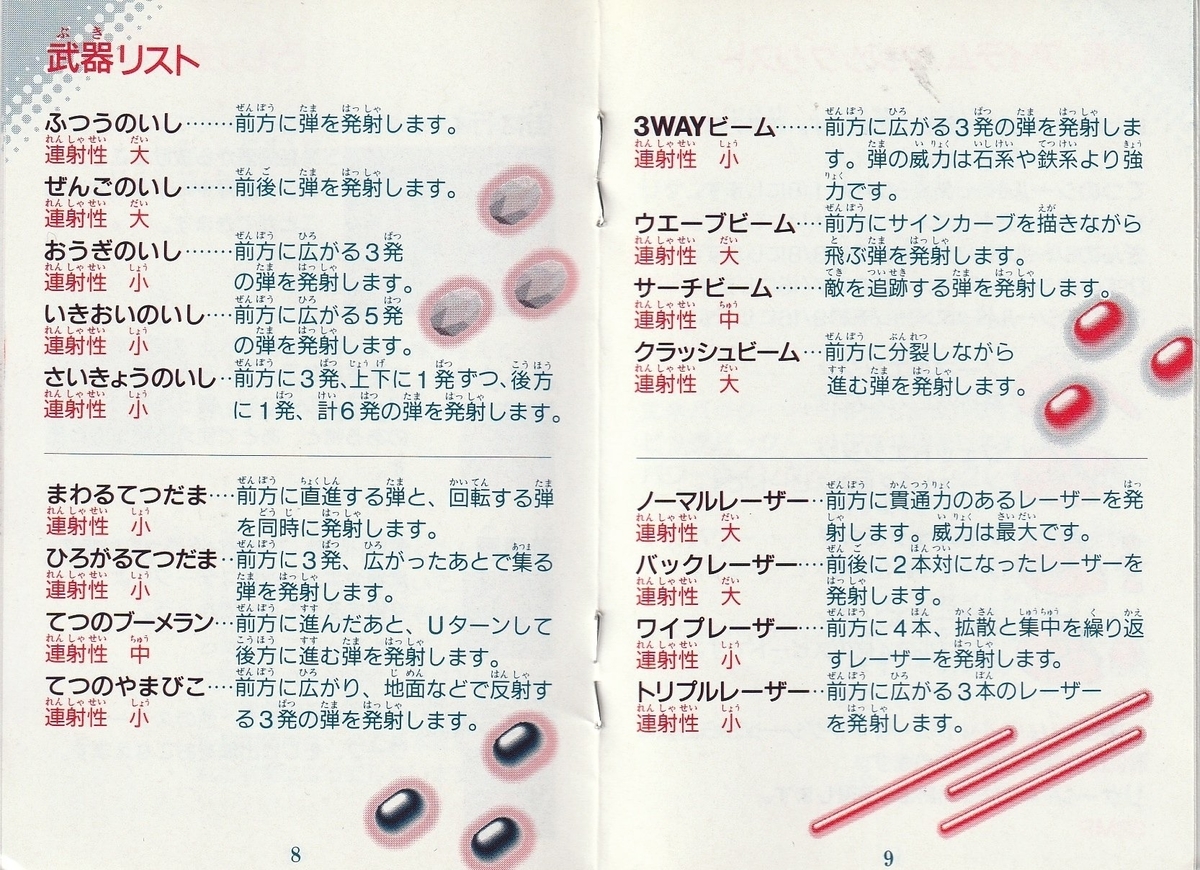 武器リスト
ふつうのいし……前方に弾を発射します。
連射性 大
ぜんごのいし……前後に弾を発射します。
連射性 大
おうぎのいし……前方に広がる3発
連射性 小 の弾を発射します。
いきおいのいし…前方に広がる5発
連射性 小 の弾を発射します。
さいきょうのいし‥前方に3発、上下に1発ずつ、後方
連射性 小 に1発、計6発の弾を発射します。
まわるてつだま…前方に直進する弾と、回転する弾
連射性 小 を同時に発射します。
ひろがるてつだま‥前方に3発、広がったあとで集る
連射性 小 弾を発射します。
てつのブーメラン…前方に進んだあと、Uターンして
連射性 中 後方に進む弾を発射します。
てつのやまびこ…前方に広がり、地面などで反射す
連射性 小 る3発の弾を発射します。
8
3WAYビーム……前方に広がる3発の弾を発射しま
連射性 小 す。弾の威力は石系や鉄系より強
力です。
ウエーブビーム…前方にサインカーブを描きながら
連射性 大 飛ぶ弾を発射します。
サーチビーム……敵を追跡する弾を発射します。
連射性 中
クラッシュビーム…前方に分裂しながら
連射性 大 進む弾を発射します。
ノーマルレーザー‥前方に貫通力のあるレーザーを発
連射性 大 射します。威力は最大です。
バックレーザー…前後に2本対になったレーザーを
連射性 大 発射します。
ワイプレーザー…前方に4本、拡散と集中を繰り返
連射性 小 すレーザーを発射します。
トリプルレーザー‥前方に広がる3本のレーザー
連射性 小 を発射します。
9